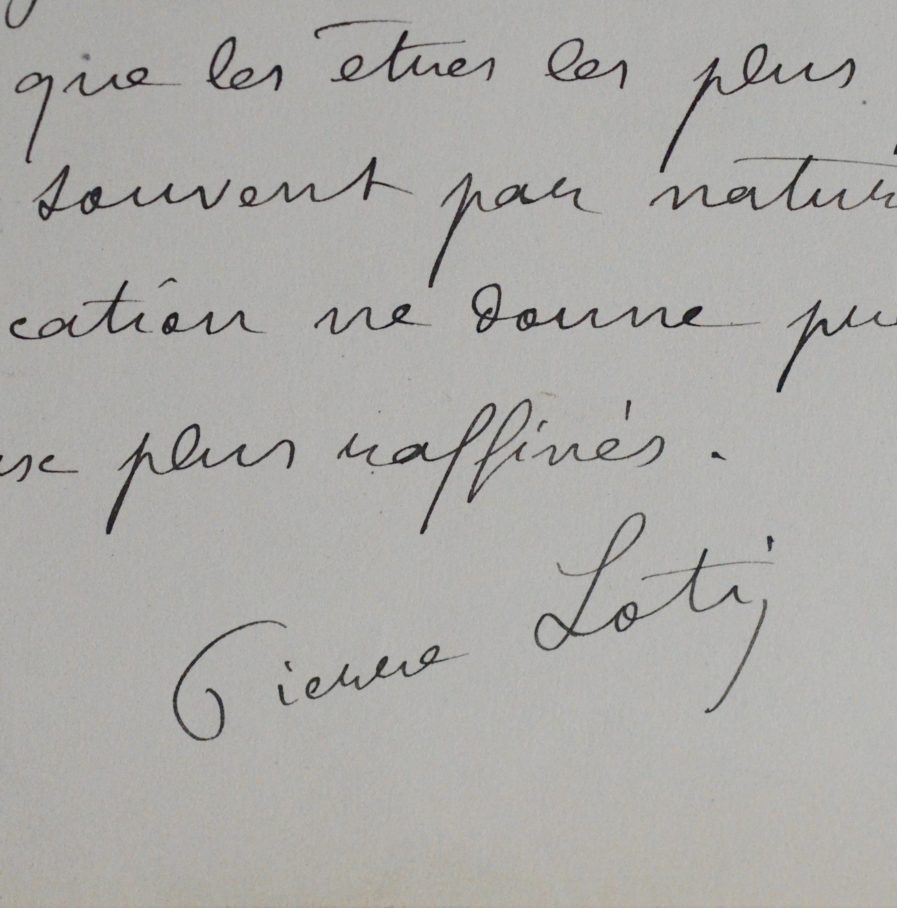 que les êtres les plus
souvent par natur
cation ne donne pu
plus raffinés.
Pierre Loti